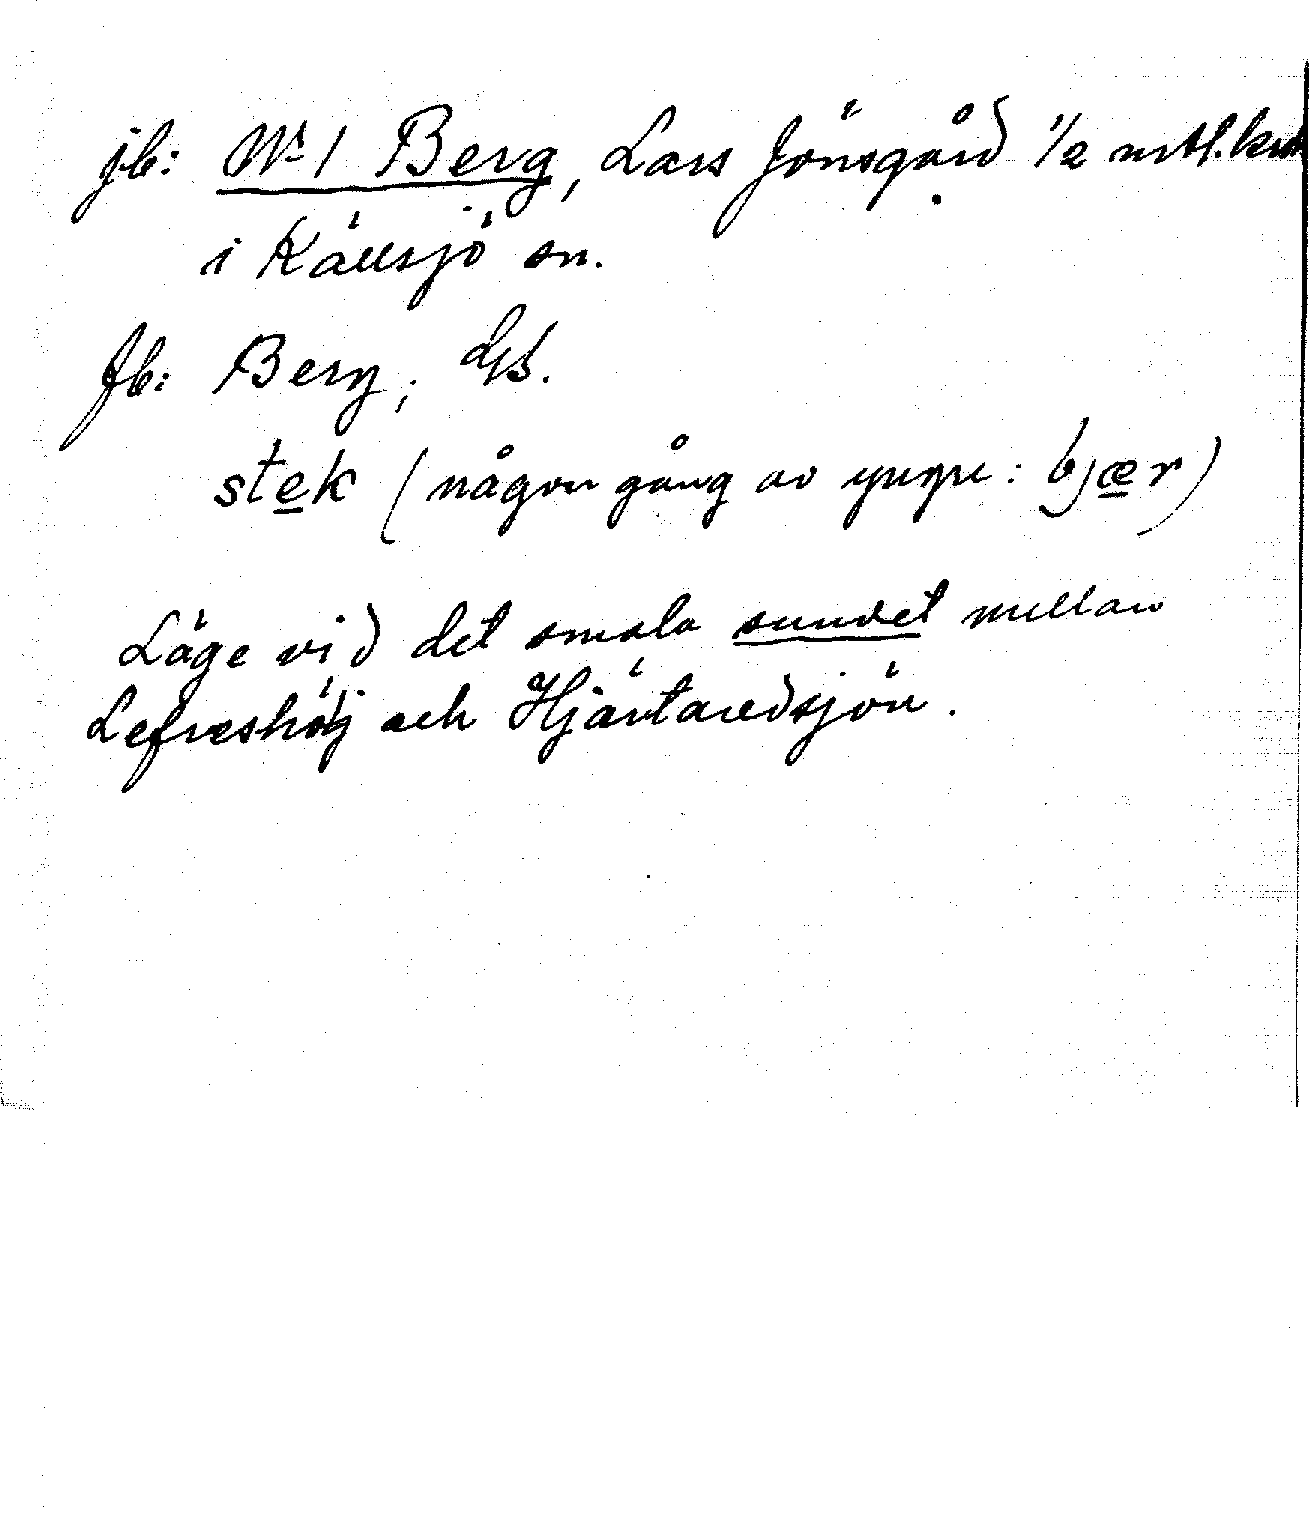 jb: Nr 1 Berg, Lars Jönsgård 1/2 mtl. kr
i Källsjö sn.
Jb: Berg;
stek (någon gång av yngre: bjær)
Läge vid det smala sundet mellan
Lefreshöj och Hjärtaredsjön.